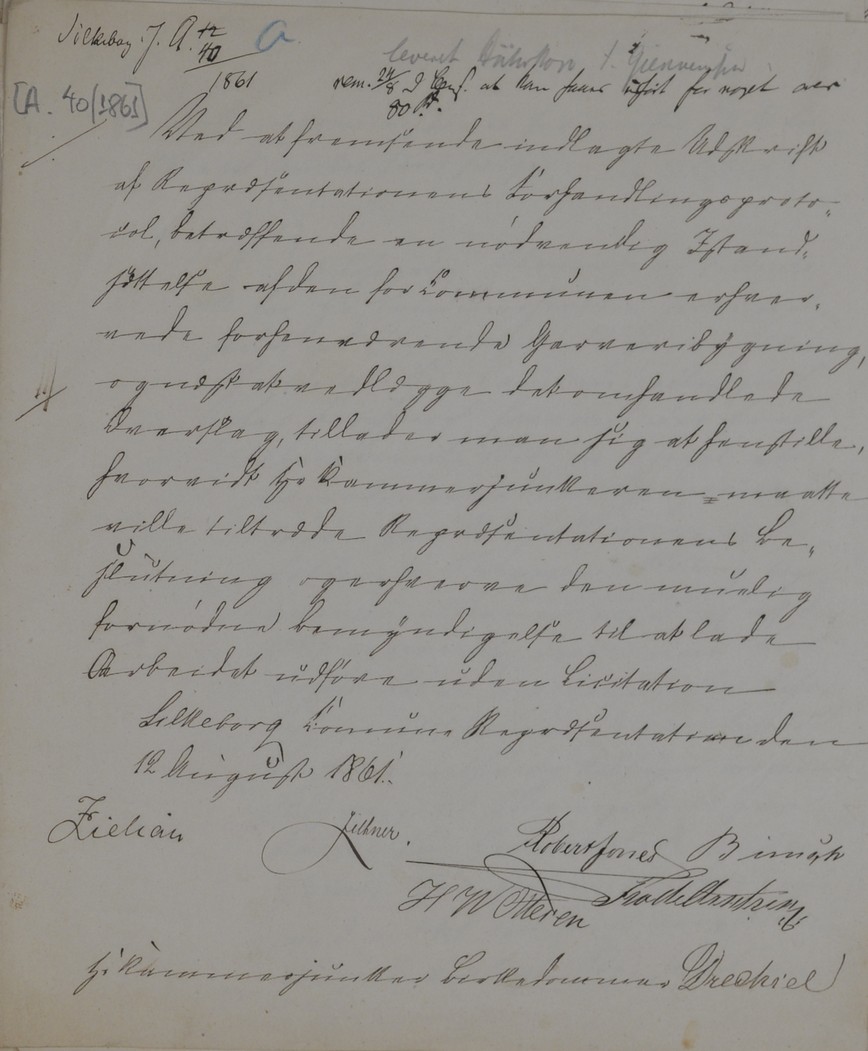 Silkeborg J. A. 12/40
1861
a
leveret
[A. 40/1861]
rem. 24/8 at kan faaes udført for noget over
80 Rd.
Ved at fremsende indlagte Udskrift
af Repræsentationens Forhandlingsproto-
col, betræffende en nödvendig Istand-
sættelse af den for Communen erhver-
vede forhenværende Garveribygning,
og næst at vedlægge det omhandlede
Overslag, tillader man sig at henstille,
hvorvidt Hr Kammerjunkeren maatte
ville tiltræde Repræsentationens Be-
slutning og erhverve den muelig
fornödne Bemyndigelse til at lade
Arbeidet udföre uden Licitation
Silkeborg Comune Repræsentation den
12 August 1861.
Robert Jones
H W
Hr Kammerjunker Birkedommer Drechsel